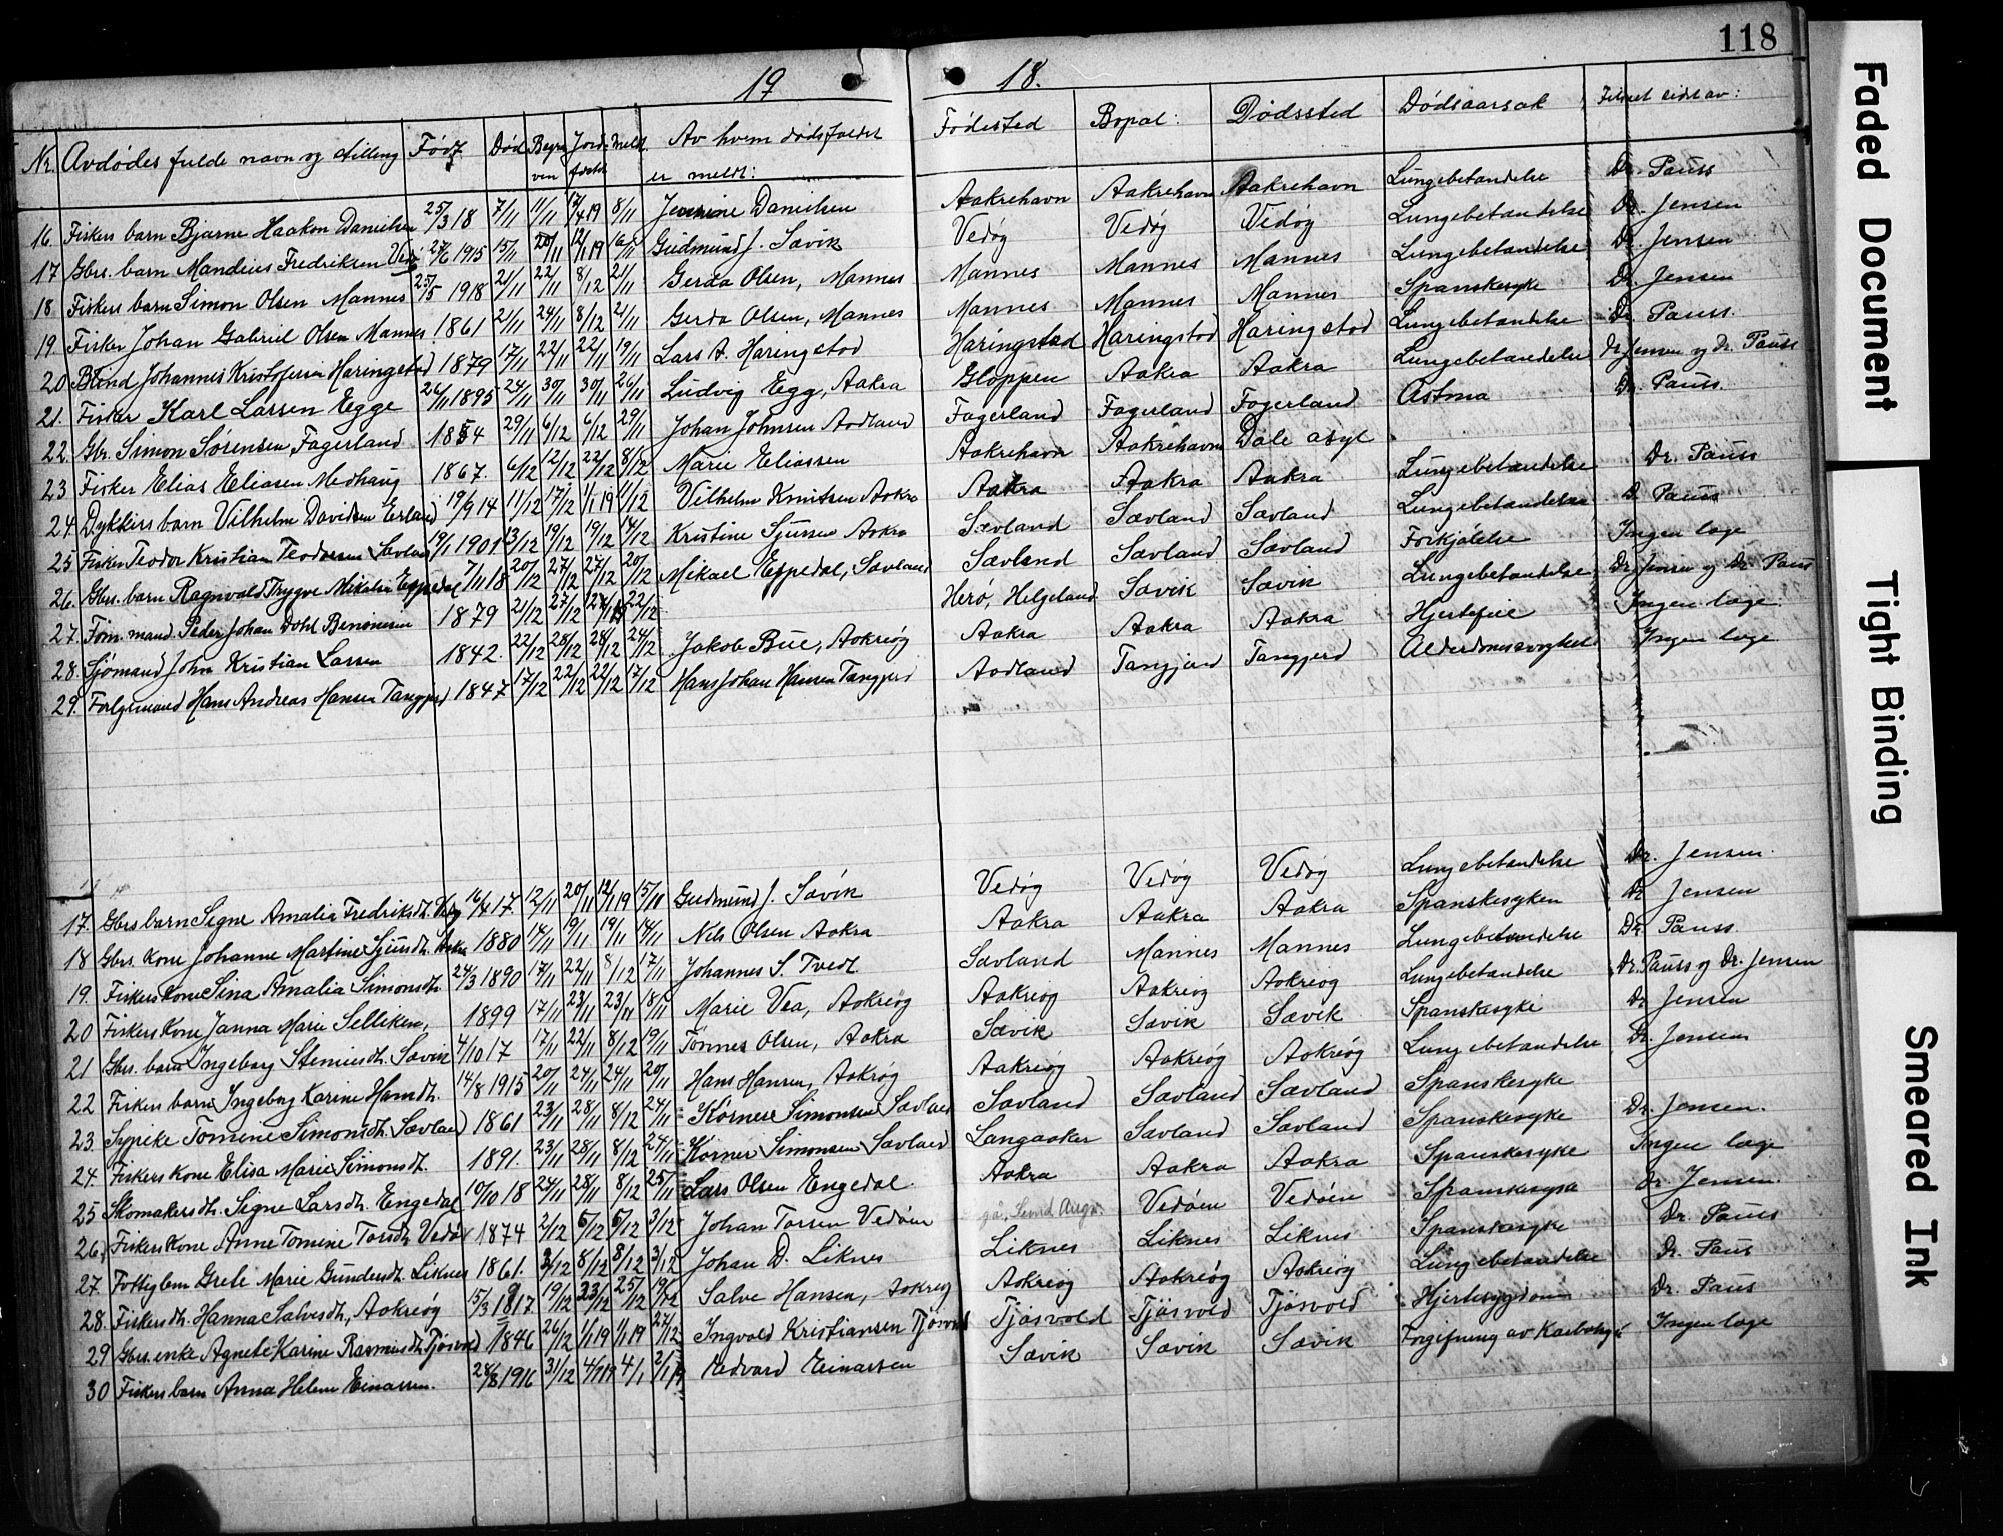 118
19 18.
Nr. Avdødes fulde navn og stilling Født Død Begra ven Jord fæstet Meldt Av hvem dødsfaldet er meldt: Fødested Bopæl: Dødssted Dødsaarsak tilset av:
16. Fiskers barn Bjarne Haakon Danielsen 25/3 18 7/11 11/11 17/4 19 8/11 Jensine Danielsen Aakrehavn Aakrehavn Aakrehavn Lungebetændelse Dr. Pauss
17 Gbrs. barn Mandius Fredriksen Vedø 27/6 1915 15/11 20/11 12/1 19 16/11 Gudmund J. Sævik Vedøg Vedøg Vedøg Lungebetændelse Dr. Jensen
18. Fiskers barn Simon Olsen Mannes 25/5 1918 21/11 22/11 8/12 21/11 Gerda Olsen, Mannes Mannes Mannes Mannes Lungebetændelse Dr. Jensen
19. Fisker Johan Gabriel Olsen Mannes 1861 21/11 24/11 8/12 21/11 Gerda Olsen, Mannes Mannes Mannes Mannes Spanskesyke Dr. Jensen
20 Blind Johannes Kristofersen Haringstad 1879 17/11 22/11 22/11 19/11 Lars A. Haringstad Haringstad Haringstad Haringstad Lungebetændelse Dr. Pauss.
21. Fisker Karl Larsen Egge 26/11 1895 24/11 30/11 30/11 26/11 Ludvig Egg, Aakra Gloppen Aakra Aakra Lungebetændelse Dr Jensen og Dr. Pauss
22. Gbr. Simon Sørensen Fagerland 1854 29/11 6/12 6/12 29/11 Johan Johnsen Aadland Fagerland Fagerland Fagerland Astma Dr. Pauss.
23 Fisker Elias Eliasen Medhaug 1867. 6/12 12/12 22/12 8/12 Marie Eliassen Aakrehavn Aakrehavn Dale asyl
24. Dykkers barn Vilhelm Davidsen Erland 19/9 14 11/12 17/12 1/1 19 11/12 Vilhelm Knutsen Aakra Aakra Aakra Aakra Lungebetændelse Dr. Pauss
25 Fisker Teodor Kristian Teodorsen Sævland 19/1 1901 13/12 19/12 19/12 14/12 Kristine Sjursen Aakra Sævland Sævland Sævland Lungebetændelse Dr. Pauss
26. Gbrs. barn Ragnvald Trygve Mikalsen Espedal 7/11 18 20/12 27/12 27/12 20/12 Mikael Espedal, Sævland Sævland Sævland Sævland Forkjølelse Ingen læge
27. Tøm. mand Peder Johan Dahl Benonisen 1879 21/12 27/12 27/12 22/12 Herø, Helgeland Sævik Sævik Lungebetændelse Dr. Jensen og Dr. Pauss
28. Sjømand John Kristian Larsen 1842. 22/12 28/12 28/12 24/12 Jakob Bue, Aakreøg Aakra Aakra Aakra Hjertefeil Ingen læge.
29. Følgemand Hans Andreas Hansen Tangjerd 1847 17/12 22/12 22/12 17/12 Hans Johan Hansen Tangjerd Aadland Tangjerd Tangjerd Alderdomssvakhet Ingen læge
17. Gbrs barn Signe Amalia Fredriksdt. Vedøg 16/4 17. 12/11 20/11 12/1 19 15/11 Gudmund J. Sævik Vedøg Vedøg Vedøg Lungebetændelse Dr. Jensen.
18 Gbrs. kone Johanne Martine Sjursdt. Aakra 1880 14/11 19/11 19/11 14/11 Nils Olsen Aakra Aakra Aakra Aakra Spanskesyken Dr Jensen
19. Fiskers kone Sina Amalia Simonsdt. 24/3 1890 17/11 22/11 8/12 17/11 Johannes S. Tvedt Sævland Mannes Mannes Lungebetændelse Dr. Pauss.
20 Fiskers kone Janna Marie Selliken, 1899 17/11 23/11 23/11 18/11 Marie Vea, Aakreøg Aakreøg Aakreøg Aakreøg Lungebetændelse Dr. Pauss og Dr. Jensen
21 Gbrs. barn Ingeborg Stensdt. Sævik 4/10 17 17/11 22/11 8/12 19/11 Tønnes Olsen, Aakra Sævik Sævik Sævik Spanskesyke Dr Jensen
22 Fiskers barn Ingeborg Karine Hansdt. 14/8 1915 20/11 24/11 24/11 20/11 Hans Hansen, Aakrøg Aakreøg Aakreøg Aakreøg Lungebetændelse Dr. Jensen
23. Sypike Tomine Simonsdt. Sævland 1861 23/11 28/11 8/12 24/11 Kørner Simonsen Sævland Sævland Sævland Sævland Spanskesyke
24. Fiskers kone Elisa Marie Simonsdt. 1891. 23/11 28/11 8/12 24/11 Kørner Simonsen Sævland Langaaker Sævland Sævland Spanskesyke Dr. Jensen.
25 Skomakersdt. Signe Larsdt. Engedal 10/10 18 24/11 28/11 8/12 25/11 Lars Olsen Engedal Aakra Aakra Aakra Spanskesyke Ingen læge
26, Fiskers kone Anne Tomine Torsdt Vedø 1874 2/12 6/12 6/12 3/12 Johan Torsen Vedøen Vedøen Vedøen Spanskesyke Dr. Jensen.
27. Fattiglem Grete Marie Gundersdt. Liknes 1861. 3/12 8/12 8/12 3/12 Johan D. Liknes Liknes Liknes Liknes Spanskesyke Dr. Pauss
28. Fiskersdt. Hanna Salvesdt., Aakreøg 15/3 1917 19/12 23/12 25/12 19/12 Salve Hansen, Aakreøg Aakreøg Aakreøg Aakreøg Lungebetændelse Dr. Paus
29 Gbrs. enke Agnete Karine Rasmusdt. Tjøsvold 1846 26/12 1/1 19 1/1 19 27/12 Ingvald Kristiansen Tjøsvold Tjøsvold Tjøsvold Tjøsvold Hjertesygdom Dr. Paus
30 Fiskers barn Anna Helene Einarsen. 28/8 1916 31/12 4/1 19 4/1 2/1 19 Edvard Einarsen Sævik Sævik Sævik Forgiftning av Karbolsyre Ingen læge
Faded Document
Tight Binding
Smeared Ink